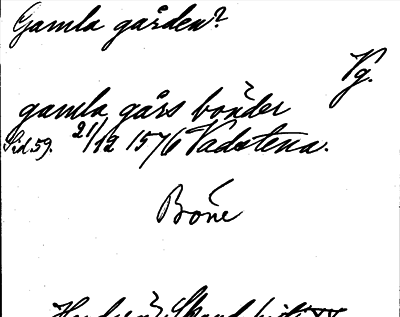 Gamla gården?
Vg.
gamla gårs bonder
Sid. 59. 21/12 1576 Vadstena.
Bone